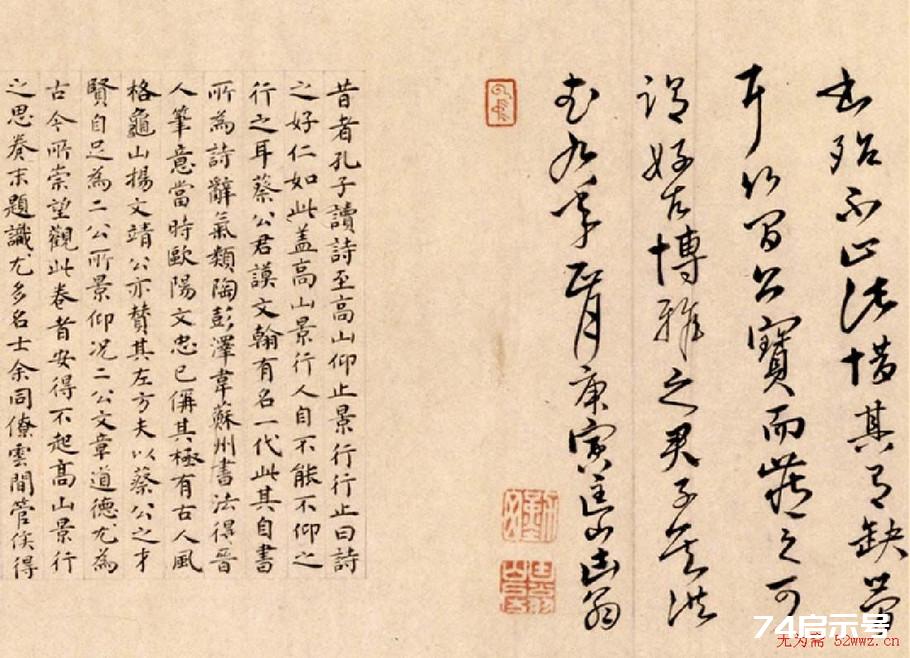 書殆不止法惜其有缺
耳公寶而藏之可
謂好古博雅之君子矣洪
武九年正月庚寅匡山幽翁
昔者孔子讀詩至高山仰止景行行止曰詩
之好仁如此盖高山景行人自不能不仰之
行之耳蔡公君謨文翰有名一代此其自書
所為詩辭氣類陶彭澤韋蘇州書法得晉
人筆意當時歐陽文忠已偁其極有古人風
格龜山揚文靖公亦賛其左方夫以蔡公之才
賢自足為二公所景仰况二公文章道德尤為
古今所崇望觀此卷者安得不起高山景行
之思卷末題識尤多名士余同僚雲間管侯得
74启示号
无为斋 52wwz.cn